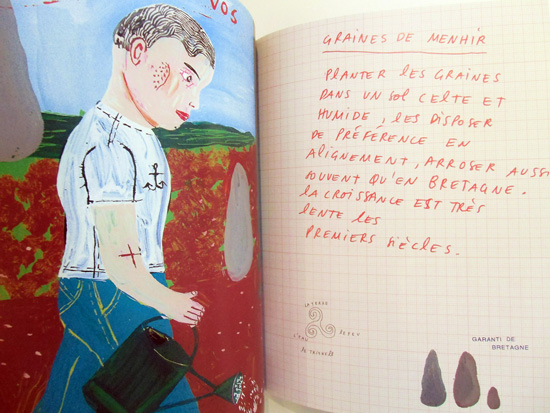 VOS
GRAINES DE MENHIR
PLANTER LES GRAINES
DANS UN SOL CELTE ET
HUMIDE, LES DISPOSER
DE PRÉFÉRENCE EN
ALIGNEMENT, ARROSER AUSSI
SOUVENT QU'EN BRETAGNE.
LA CROISSANCE EST TRÈS
LENTE LES
PREMIERS SIÈCLES.
LA TERRE
LE FEU
L'EAU
GARANTI DE
BRETAGNE